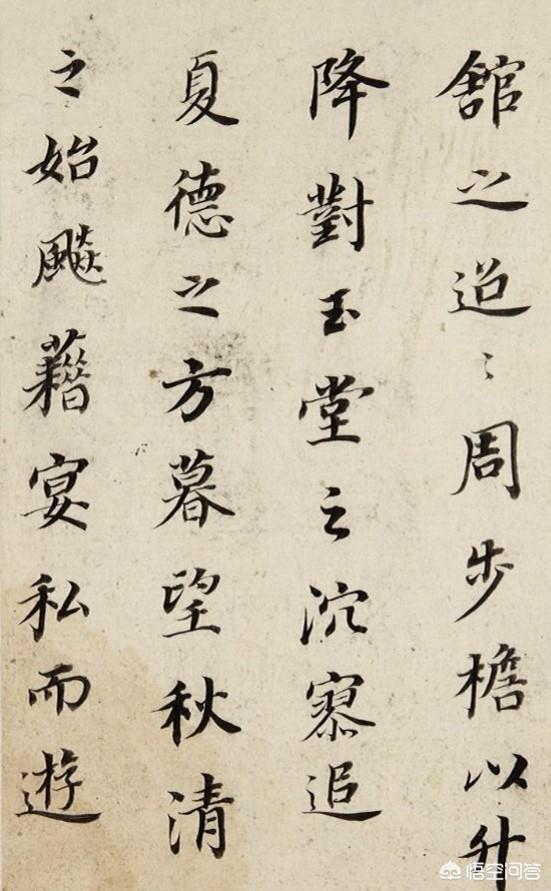 舘之迢〻周步檐以升
降對玉堂之泬寥追
夏德之方暮望秋清
之始飈藉宴私而遊
悟空问答